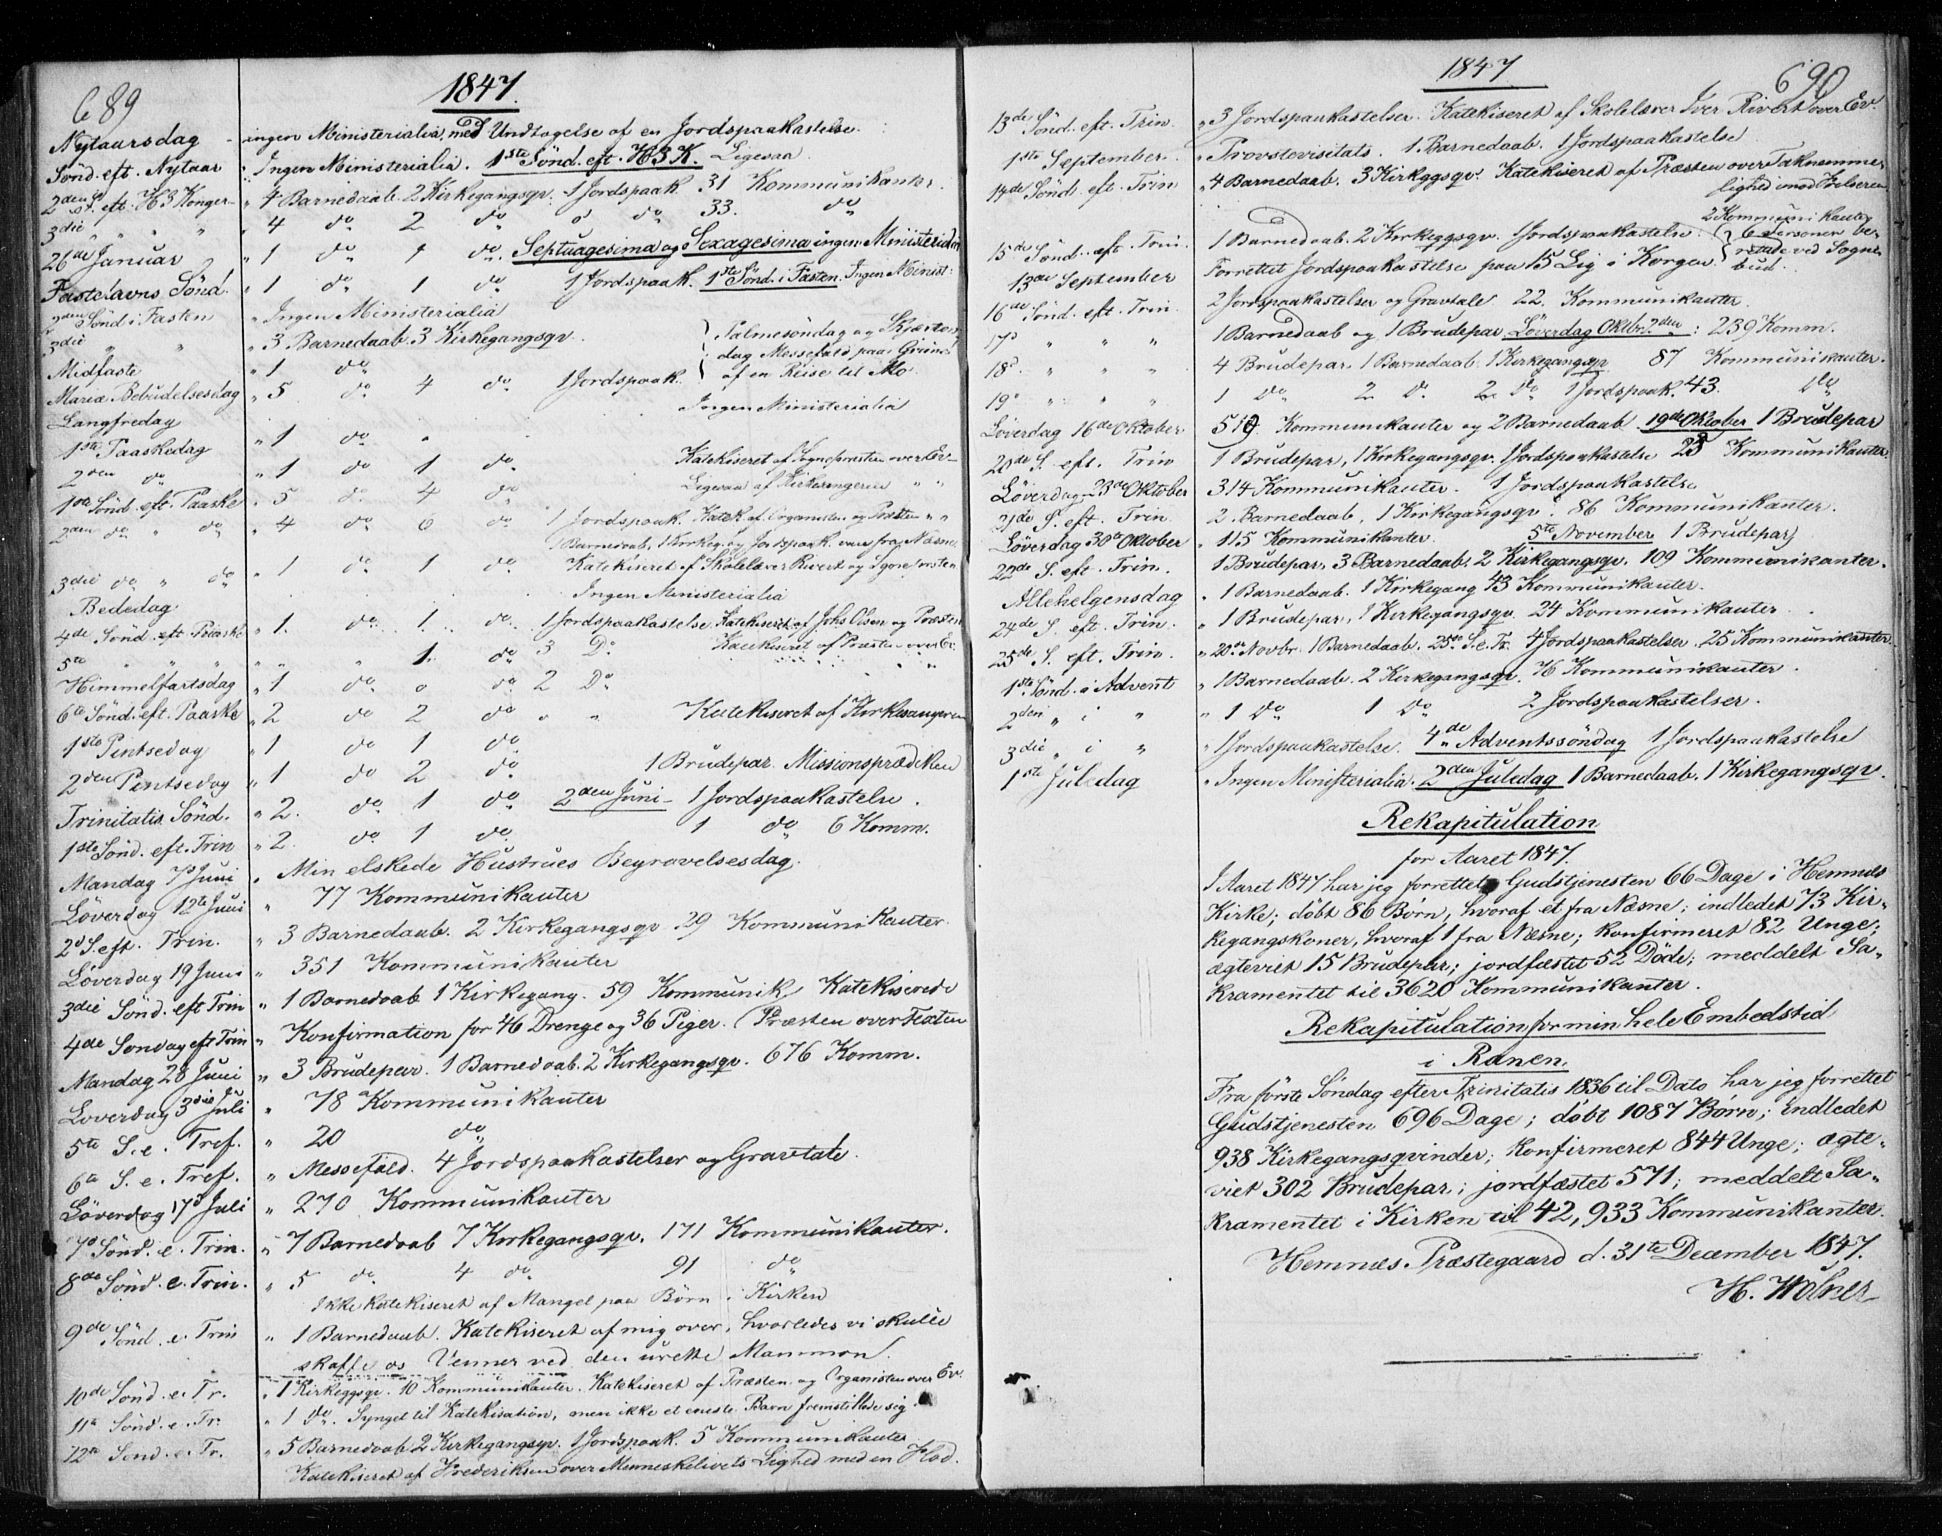 689
1847.
Nytaarsdag - ingen Ministerialia med Undtagelse af en Jordspaakastelse.
Sönd. eft. Nytaar " Ingen Ministerialia. 1ste Sönd. eft. H3K. Ligesaa
2den S. eft. H3 Konger " 4 Barnedaab. 2 Kirkegangsqv. 1 Jordspaak. 31 Kommunikanter.
3die " " " " 4 do 2 do 0 do 33. do
26de Januar " 1 do 1 do. Septuagesima og Sexagesima ingen Ministerialia
Fastelavns Sönd. " 1 do 1 do 1 Jordspaak. 1ste Sönd. i Fasten. Ingen Minist:
2den Sönd i Fasten " Ingen Ministerialia
3die " " " 3 Barnedaab. 3 Kirkegangsqv. Palmesöndag og Skjærtors-
Midfaste " 1 do dag Messefald paa Grund
Mariæ Bebudelsesdag " 5 do 4 do 1 Jordspaak. af en Reise til Mo.
Langfredag Ingen Ministerialia
1ste Paaskedag " 1 do "
2den do " 1 do 1 do Katekiseret af Sognepræsten over Ev-
1ste Sönd. eft. Paaske " 5 do 4 do Ligesaa af Kirkesangeren " "
2den do " do " 4 do 6 do 1 Jordspaak. Katek. af Organisten og Præsten " "
1 Barnedaab, 1 Kirkeg. og Jordspaak. vare fra Næsne
3die do " do " 1 do 1 do Katekiseret af Skolelærer Rivert og Sognepræsten
Bededag. Ingen Ministerialia
4de Sönd. eft. Paaske " 1. do 1. do 1 Jordspaakastelse. Katekiseret af Johs Olsen og Præsten
5te " " " " " 1. do 3 Do Katekiseret af Præsten over Ev.
Himmelfartsdag " 1 do 0 do 2 Do
6te Sönd. eft. Paaske " 2 do 2 do " " Katekiseret af Kirkesangeren
1ste Pintsedag " 1 do 1 do
2den Pintsedag " 1 do 2 do 1 Brudepar. Missionsprædiken
Trinitatis Sönd. " 2. do 1 do 2den Juni - 1 Jordspaakastelse.
1ste Sönd. eft. Trin " 2. do 1 do 1 do 6 Komm.
Mandag 7de Juni " Min elskede Hustrues Begravelsesdag.
Löverdag 12te Juni " 77 Kommunikanter
2d S. eft. Trin. " 3 Barnedaab. 2 Kirkegangsqv. 29 Kommunikanter.
Löverdag 19 Juni " 351 Kommunikanter
3die Sönd. eft Trin " 1 Barnedaab 1 Kirkegang. 59 Kommunik. Katekiserede
4de Sondag eft Trin " Konfirmation for 46 Drenge og 36 Piger. (Præsten over Texten
Mandag 28 Juni " 3 Brudepar. 1 Barnedaab. 2 Kirkegangsqv. 676 Komm.
Loverdag 3die Juli " 78 Kommunikanter
5te S. e. Tref. " 20 do
6te S. e. Tref. " Messefald. 4 Jordspaakastelser og Gravtale.
Löverdag 17d Juli " 270 Kommunikanter
7d Sönd. e. Trin. " 7 Barnedaab 7 Kirkegangsqv. 171 Kommunikanter.
8de Sönd. e. Trin. " 5 do 4 do 91 do
Ikke katekiseret af Mangel paa Börn i Kirken
9de Sönd. e. Trin " 1 Barnedaab. Katekiseret af mig over, hvorledes vi skulle
skaffe os Venner ved den urette Mammon.
10de Sönd. e. Tr. " 1 Kirkeggsqv. 10 Kommunikanter. Katekiseret af Præsten og Organisten over Ev.
11te Sönd. e. Tr. " 1 do. Synget til Katekisation, men ikke et eneste Barn fremstillede sig.
12te Sönd. e. Tr. " 5 Barnedaab 2 Kirkegangsqv. 1 Jordspaak. 5 Kommunikanter
Katekiseret af Frederiksen over Menneskelivets Lighed med en Flod.
1847
690
13de Sönd. eft. Trin. " 3 Jordspaakastelser. Katekiseret af Skolelærer Iver Rivert over Ev.
1ste September. " Provstevisitats. 1 Barnedaab. 1 Jordspaakastelse
14de Sönd. eft. Trin " 4 Barnedaab. 3 Kirkggsqv. Katekiseret af Præsten over Taknemme-
lighed imod Frelseren
2 Kommunikanter
15de Sönd. eft. Trin. 1 Barnedaab. 2 Kirkeggsqv. 1 Jordspaakastelse. (6 Personer be-
13de September Forrettet Jordspaakastelse paa 15 Lig i Korgen. rettede ved Sogne-
bud.
16de Sönd. eft. Trin. 2 Jordspaakastelser og Gravtale 22. Kommunikanter.
17d " " " 1 Barnedaab og 1 Brudepar Löverdag Oktbr. 2den: 239 Komm.
18d. " " " 4 Brudepar, 1 Barnedaab. 1 Kirkegangsqv 87 Kommunikanter.
19d " " " 1 Do 2 do. 2 Do 1 Jordspaak. 43. Do
Löverdag 16de Oktober. 519 Kommunikanter og 2 Barnedaab 19de Oktober 1 Brudepar
20de S. eft. Trin 1 Brudepar, 1 Kirkegangsqv. 1 Jordspaakastelse 28 Kommunikanter.
Löverdag 23de Oktober 314 Kommunikanter. 1 Jordspaakastelse
21de S. eft. Trin 2 Barnedaab, 1 Kirkegangsqv. 86 Kommunikanter.
Löverdag 30te Oktober " 115 Kommunikanter. 5te November 1 Brudepar)
22de S. eft. Trin. 1 Brudepar, 3 Barnedaab. 2 Kirkegangsqv. 109 Kommunikanter.
Allehelgensdag " 1 Barnedaab. 1 Kirkegang 43 Kommunikanter.
24de S. eft. Trin. " 1 Brudepar, 1 Kirkegangsqv. 24 Kommunikanter.
25de S. eft. Trin. " 20de Novbr. 1 Barnedaab. 25de S. e. Tr. 4 Jordspaakastelser. 25 Kommunikanter
1ste Sönd. i Advent " 1 Barnedaab. 2 Kirkegangsqv. 76 Kommunikanter.
2den " i " " 1 Do 1 Do 2 Jordspaakastelser.
3die " i " " 1 Jordspaakastelse. 4de Adventssöndag 1 Jordspaakastelse
1ste Juledag " Ingen Ministerialia. 2den Juledag 1 Barnedaab. 1 Kirkegangsqv.
Rekapitulation
for Aaret 1847.
I Aaret 1847 har jeg forrettet Gudstjenesten 66 Dage i Hemnæs
Kirke; döbt 86 Börn, hvoraf et fra Næsne; indledet 73 Kir-
kegangskoner, hvoraf 1 fra Næsne; konfirmeret 82 Unge;
ægteviet 15 Brudepar; jordfæstet 52 Döde; meddelt Sa-
kramentet til 3620 Kommunikanter.
Rekapitulation for min hele Embedstid
i Ranen.
Fra förste Söndag efter Trinitatis 1836 til Dato har jeg forrettet
Gudstjenesten 696 Dage; döbt 1087 Börn; indledet
938 Kirkegangsqvinder; konfirmeret 844 Unge; ægte-
viet 302 Brudepar; jordfæstet 571; meddelt Sa-
kramentet i Kirken til 42,933 Kommunikanter.
Hemnæs Præstegaard d. 31te December 1847.
H. Wolner